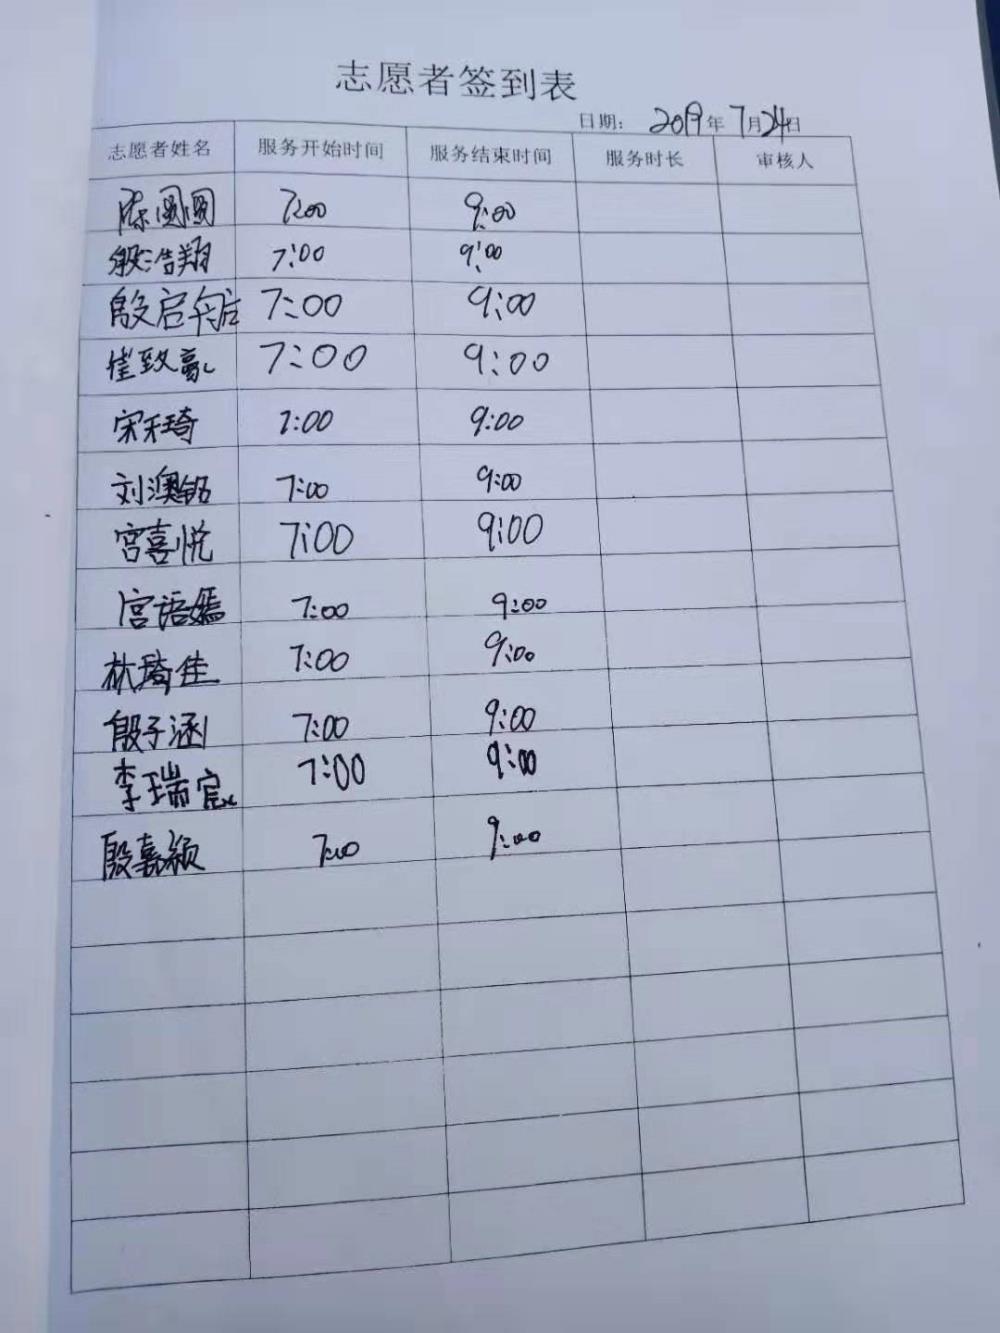 志愿者签到表
日期: 2019年7月24日
志愿者姓名 服务开始时间 服务结束时间 服务时长 审核人
陈圆圆 7:00 9:00
殷浩翔 7:00 9:00
殷启 7:00 9:00
致豪 7:00 9:00
宋禾琦 7:00 9:00
刘澳铭 7:00 9:00
宫喜悦 7:00 9:00
宫语嫣 7:00 9:00
林琦佳 7:00 9:00
殷子涵 7:00 9:00
李瑞宸 7:00 9:00
殷嘉颖 7:00 9:00